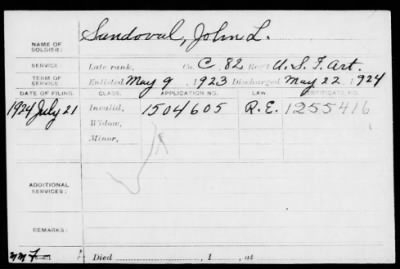 NAME OF SOLDIER: Sandoval, John L.
SERVICE: Late rank, Co. C, 82 Reg't U.S.F. Art.
TERM OF SERVICE: Enlisted May 9, 1923 Discharged May 22, 1924
DATE OF FILING. CLASS. APPLICATION NO. LAW. CERTIFICATE NO.
1924 July 21 Invalid, 1504605 R.E. 1255416
Widow,
Minor,
ADDITIONAL SERVICES:
REMARKS:
Died , 1 , at